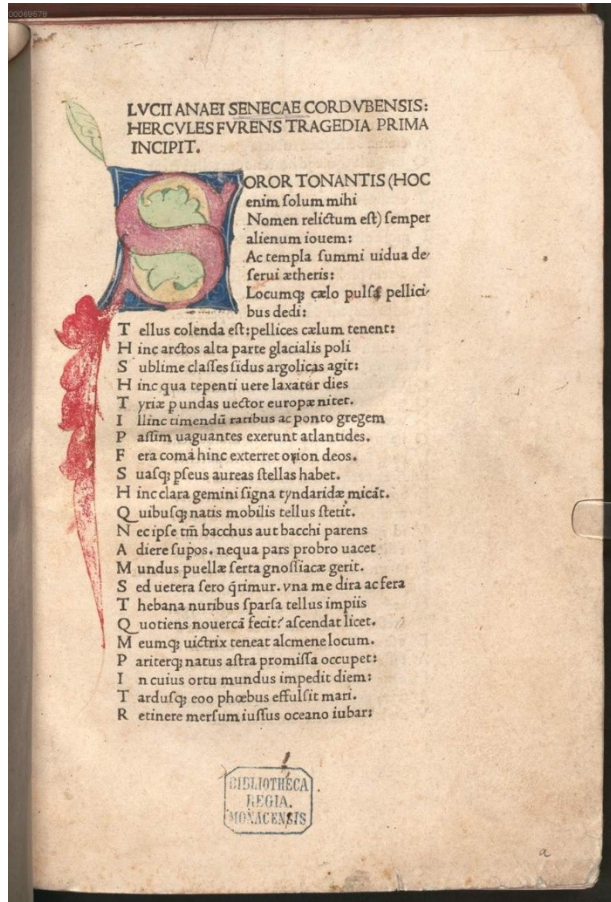 00069676
LVCII ANAEI SENECAE CORDVBENSIS:
HERCVLES FVRENS TRAGEDIA PRIMA
INCIPIT.
SOROR TONANTIS (HOC
enim ſolum mihi
Nomen relictum eſt) ſemper
alienum iouem:
Ac templa ſummi uidua de-
ſerui ætheris:
Locumq; cælo pulſa pellici-
bus dedi:
T ellus colenda eſt: pellices cælum tenent:
H inc arctos alta parte glacialis poli
S ublime claſſes ſidus argolicas agit:
H inc qua tepenti uere laxatur dies
T yriæ p undas uector europæ nitet.
I llinc timendū ratibus ac ponto gregem
P aſſim uaguantes exerunt atlantides.
F era comā hinc exterret orion deos.
S uasq; pſeus aureas ſtellas habet.
H inc clara gemini ſigna tyndaridæ micāt.
Q uibuſq; natis mobilis tellus ſtetit.
N ec ipſe tm̄ bacchus aut bacchi parens
A diere ſupos. nequa pars probro uacet
M undus puellæ ſerta gnoſſiacæ gerit.
S ed uetera ſero q̄rimur. vna me dira ac fera
T hebana nuribus ſparſa tellus impiis
Q uotiens nouercā fecit? aſcendat licet.
M eumq; uictrix teneat alcmene locum.
P ariterq; natus aſtra promiſſa occupet:
I n cuius ortu mundus impedit diem:
T arduſq; eoo phœbus effulſit mari.
R etinere merſum iuſſus oceano iubar:
BIBLIOTHECA
REGIA.
MONACENSIS
a